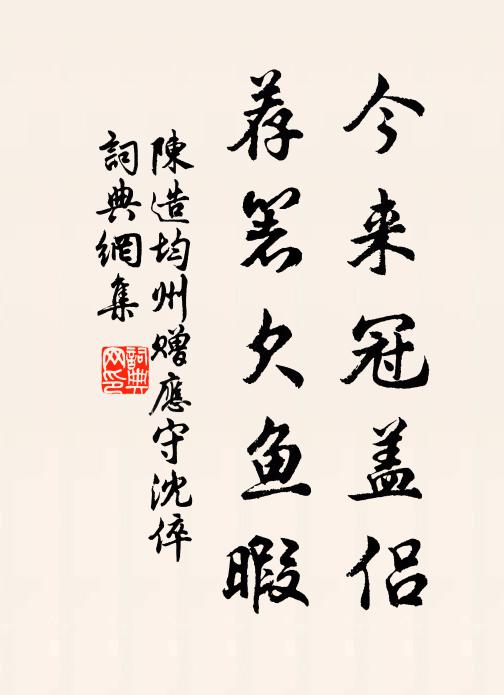 今来冠盖侣
荐箸欠鱼暇
陳造均州赠應守沈倅
詞典網集
詞典
网印